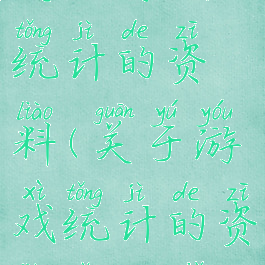 tǒng jì de zī
统计的资
liào guān yú yóu
料(关于游
xì tǒng jì de zī
戏统计的资